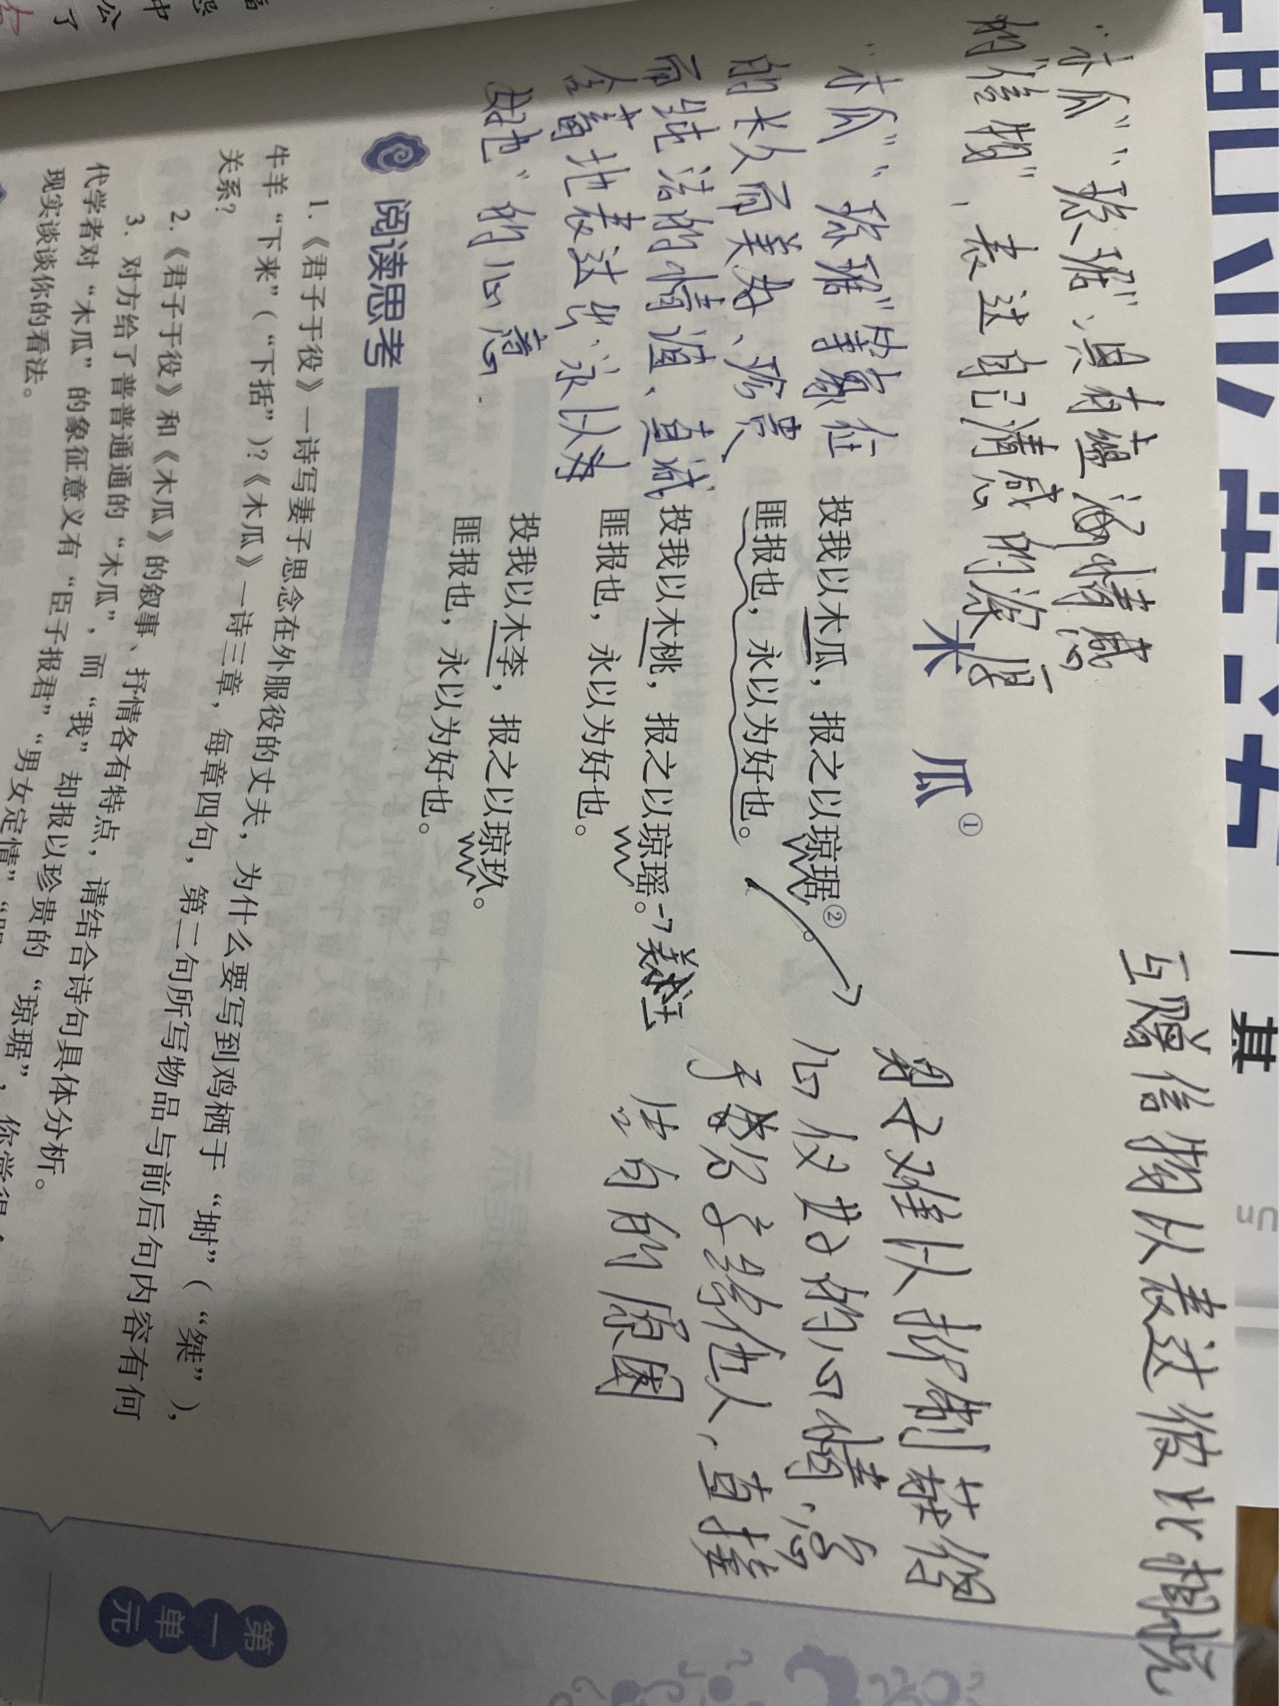 互赠信物以表达彼此相悦
“木瓜”、“琼琚”,具有蕴涵情感
的“信物”,表达自己情感的深厚
木 瓜①
“木瓜”、“琼琚”等象征
的长久而美好、珍贵
而纯洁的情谊、真诚
含蓄地表达出“永以为
好也”的心意
投我以木瓜,报之以琼琚②。
匪报也,永以为好也。
投我以木桃,报之以琼瑶。→美玉
匪报也,永以为好也。
投我以木李,报之以琼玖。
匪报也,永以为好也。
男子难以抑制获得
心仪女子的心情,急
于告知他人,直接
告白的原因
阅读思考
1.《君子于役》一诗写妻子思念在外服役的丈夫,为什么要写到鸡栖于“埘”(“桀”),
牛羊“下来”(“下括”)?《木瓜》一诗三章,每章四句,第二句所写物品与前后句内容有何
关系?
2.《君子于役》和《木瓜》的叙事、抒情各有特点,请结合诗句具体分析。
3. 对方给了普普通通的“木瓜”,而“我”却报以珍贵的“琼琚”,你觉得
代学者对“木瓜”的象征意义有“臣子报君”“男女定情”
现实谈谈你的看法。
第一单元
基
公
中
了